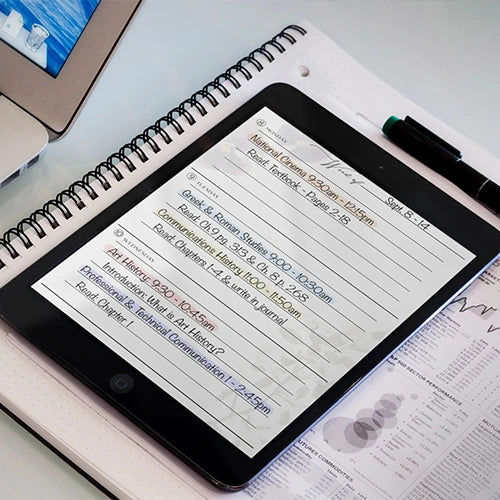 Sept. 8 - 14
8 MONDAY
National Cinema 9:30am - 12:15pm
Read: Textbook - Pages 2-18
9 TUESDAY
Greek & Roman Studies 9:00 - 10:30am
Read: Ch 9 pg. 313 & Ch. 8 p. 268
Communications History 11:00 - 11:50am
Read: Chapters 1-4 & write in journal
WEDNESDAY
Art History: 9:30 - 10:45am
Introduction: What is Art History?
Professional & Technical Communication 1 - 2:45pm
Read: Chapter 1
S&P 500 SECTOR PERFORMANCE
FUTURES COMMODITIES